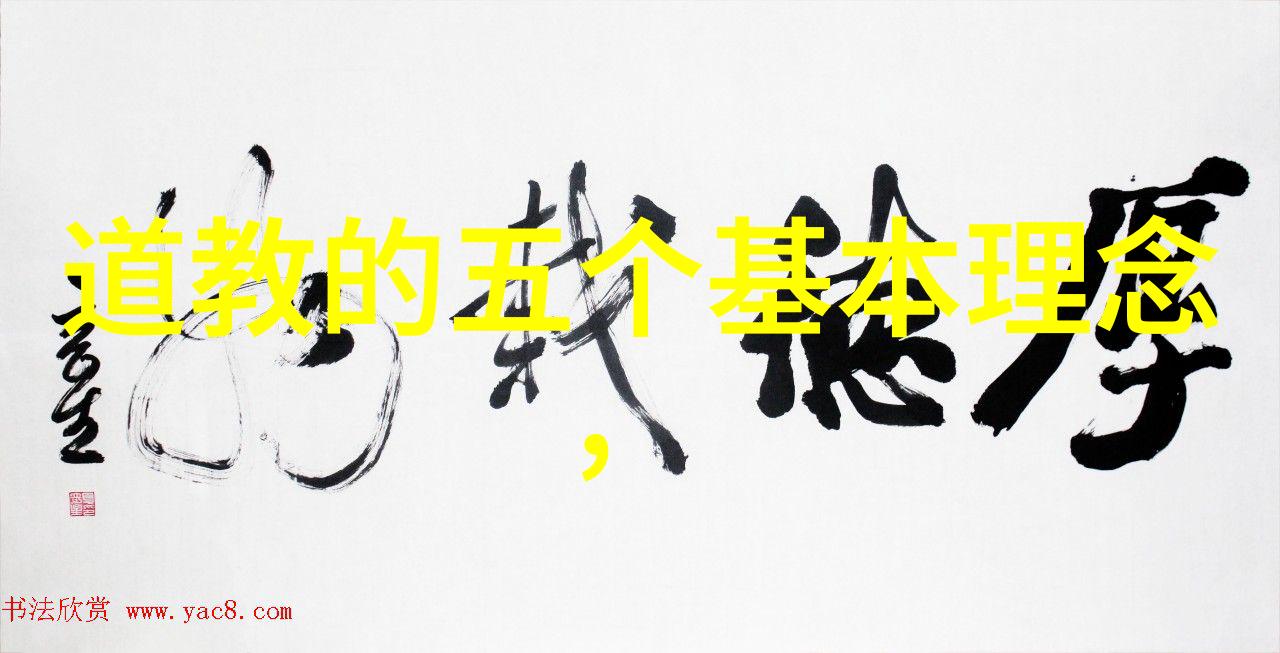 道教的五个基本理念
，
厚德载物
书法欣赏 www.yac8.com